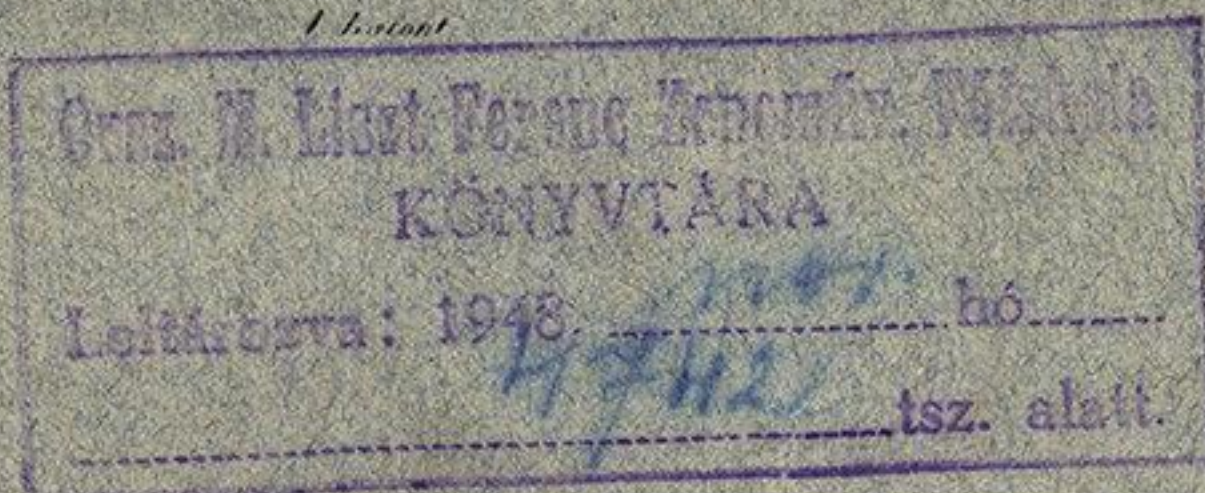 Orsz. M. Liszt Ferenc Zeneműv. Főiskola
KÖNYVTÁRA
Leltározva: 1948. nov. hó
tsz. alatt.